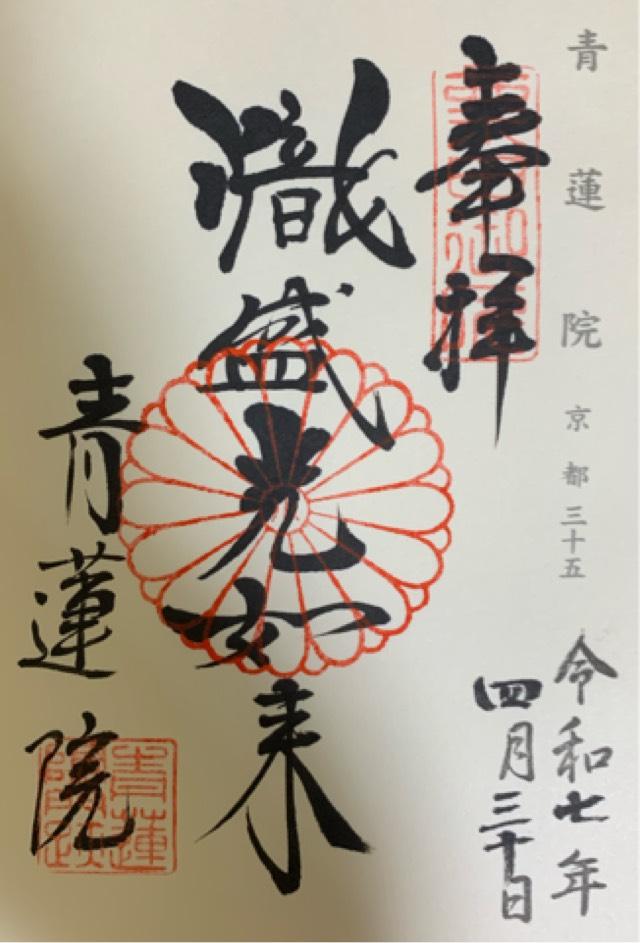 青蓮院 京都三十五
奉拝
令和七年
四月三十日
熾盛光如来
青蓮院